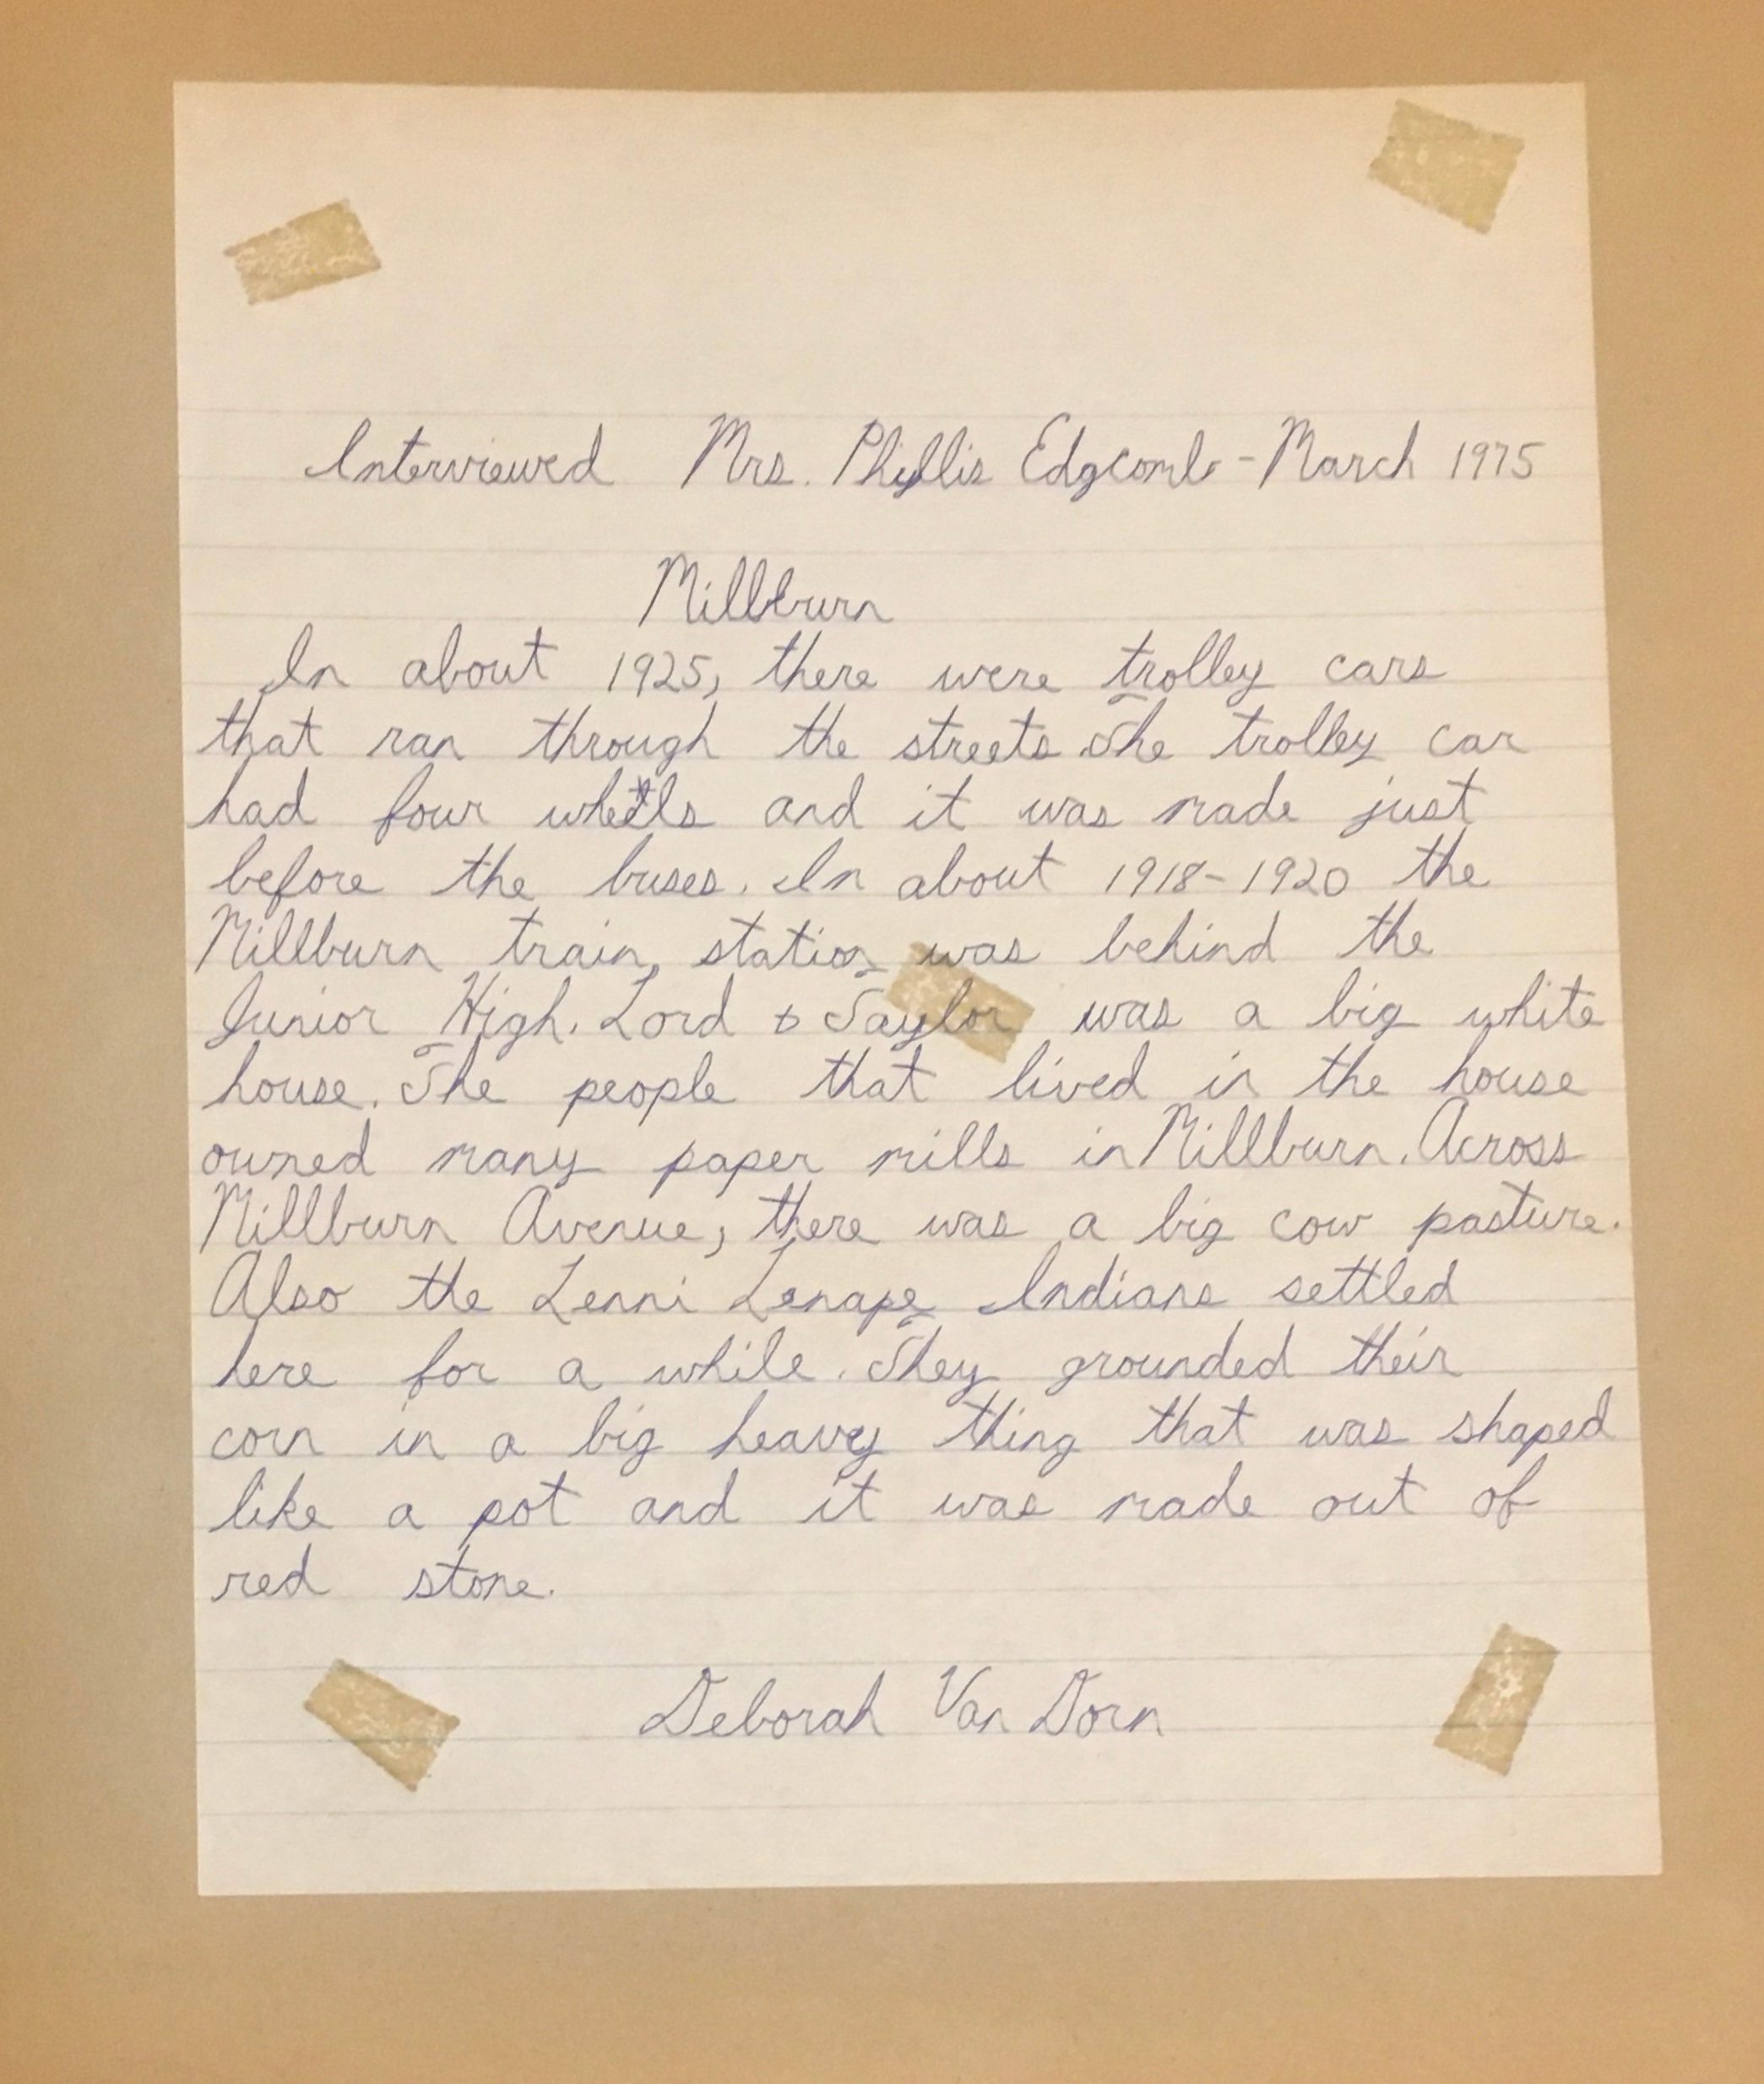 Interviewed Mrs. Phyllis Edgcomb - March 1975
Millburn
In about 1925, there were trolley cars
that ran through the streets. The trolley car
had four wheels and it was made just
before the buses. In about 1918-1920 the
Millburn train station was behind the
Junior High. Lord & Taylor was a big white
house. The people that lived in the house
owned many paper mills in Millburn. Across
Millburn Avenue, there was a big cow pasture.
Also the Lenni Lenape Indians settled
here for a while. They grounded their
corn in a big heavy thing that was shaped
like a pot and it was made out of
red stone.
Deborah Van Dorn